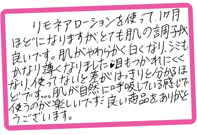 リモネアローションを使って、1ヶ月
ほどになりますがとても肌の調子が
良いです。肌がやわらかく白くなり、シミも
かなり薄くなりました。目もつかれにくく
なり、使ってないと差がはっきりと分かるほ
どです…。肌が自然に呼吸している感じで
使うのが楽しいです。良い商品をありがと
うございます。